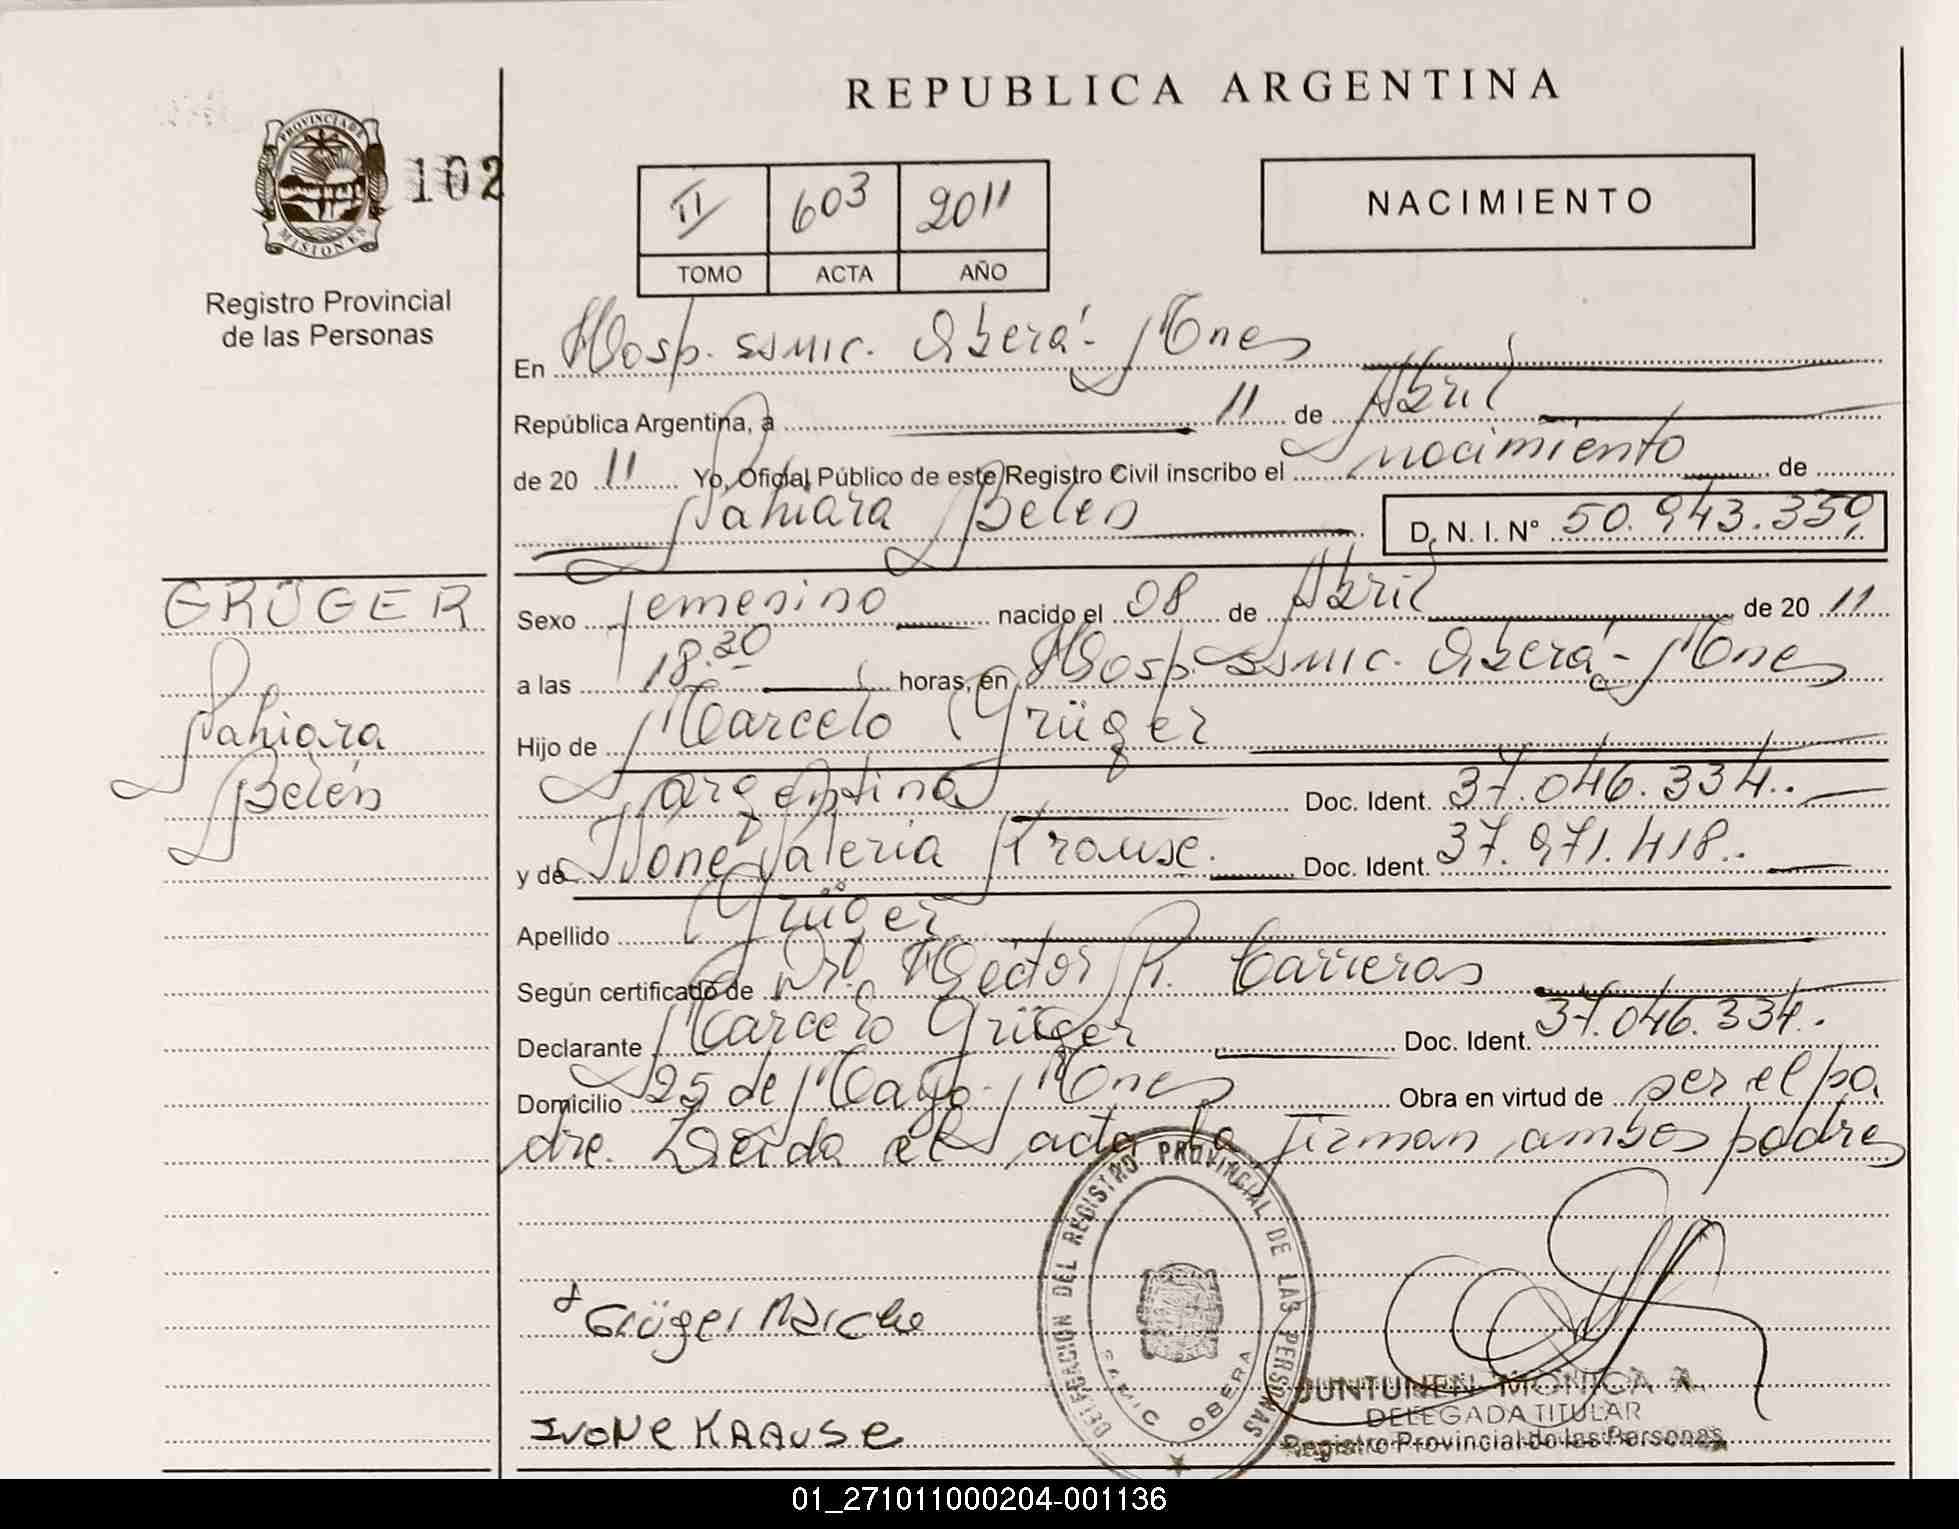 REPUBLICA ARGENTINA
PROVINCIA DE
MISIONES
102
Registro Provincial
de las Personas
II 603 2011
TOMO ACTA AÑO
NACIMIENTO
En Hosp. SSMIC. Oberá - Mnes
República Argentina, a 11 de Abril
de 20 11 Yo, Oficial Público de este Registro Civil inscribo el nacimiento de
Belen D. N. I. Nº 50.943.339
GRÜGER
Belén
Sexo femenino nacido el 08 de Abril de 20 11
a las 18.30 horas, en Hosp. SSMIC. Oberá - Mnes
Hijo de Marcelo Grüger
argentina Doc. Ident. 37.046.334..
y de Ivone Valeria Krause. Doc. Ident. 37.971.418..
Apellido Grüger
Según certificado de Dr. Hector R. Carreras
Declarante Marcelo Grüger Doc. Ident. 37.046.334..
Domicilio 25 de Mayo - Mnes Obra en virtud de ser el pa
dre. Leida el acta la firman ambos padres
DELEGACION DEL REGISTRO PROVINCIAL DE LAS PERSONAS
SAMIC OBERA
Grüger
IVONE KRAUSE
JUNTUNEN MONICA A.
DELEGADA TITULAR
Registro Provincial de las Personas
01_271011000204-001136